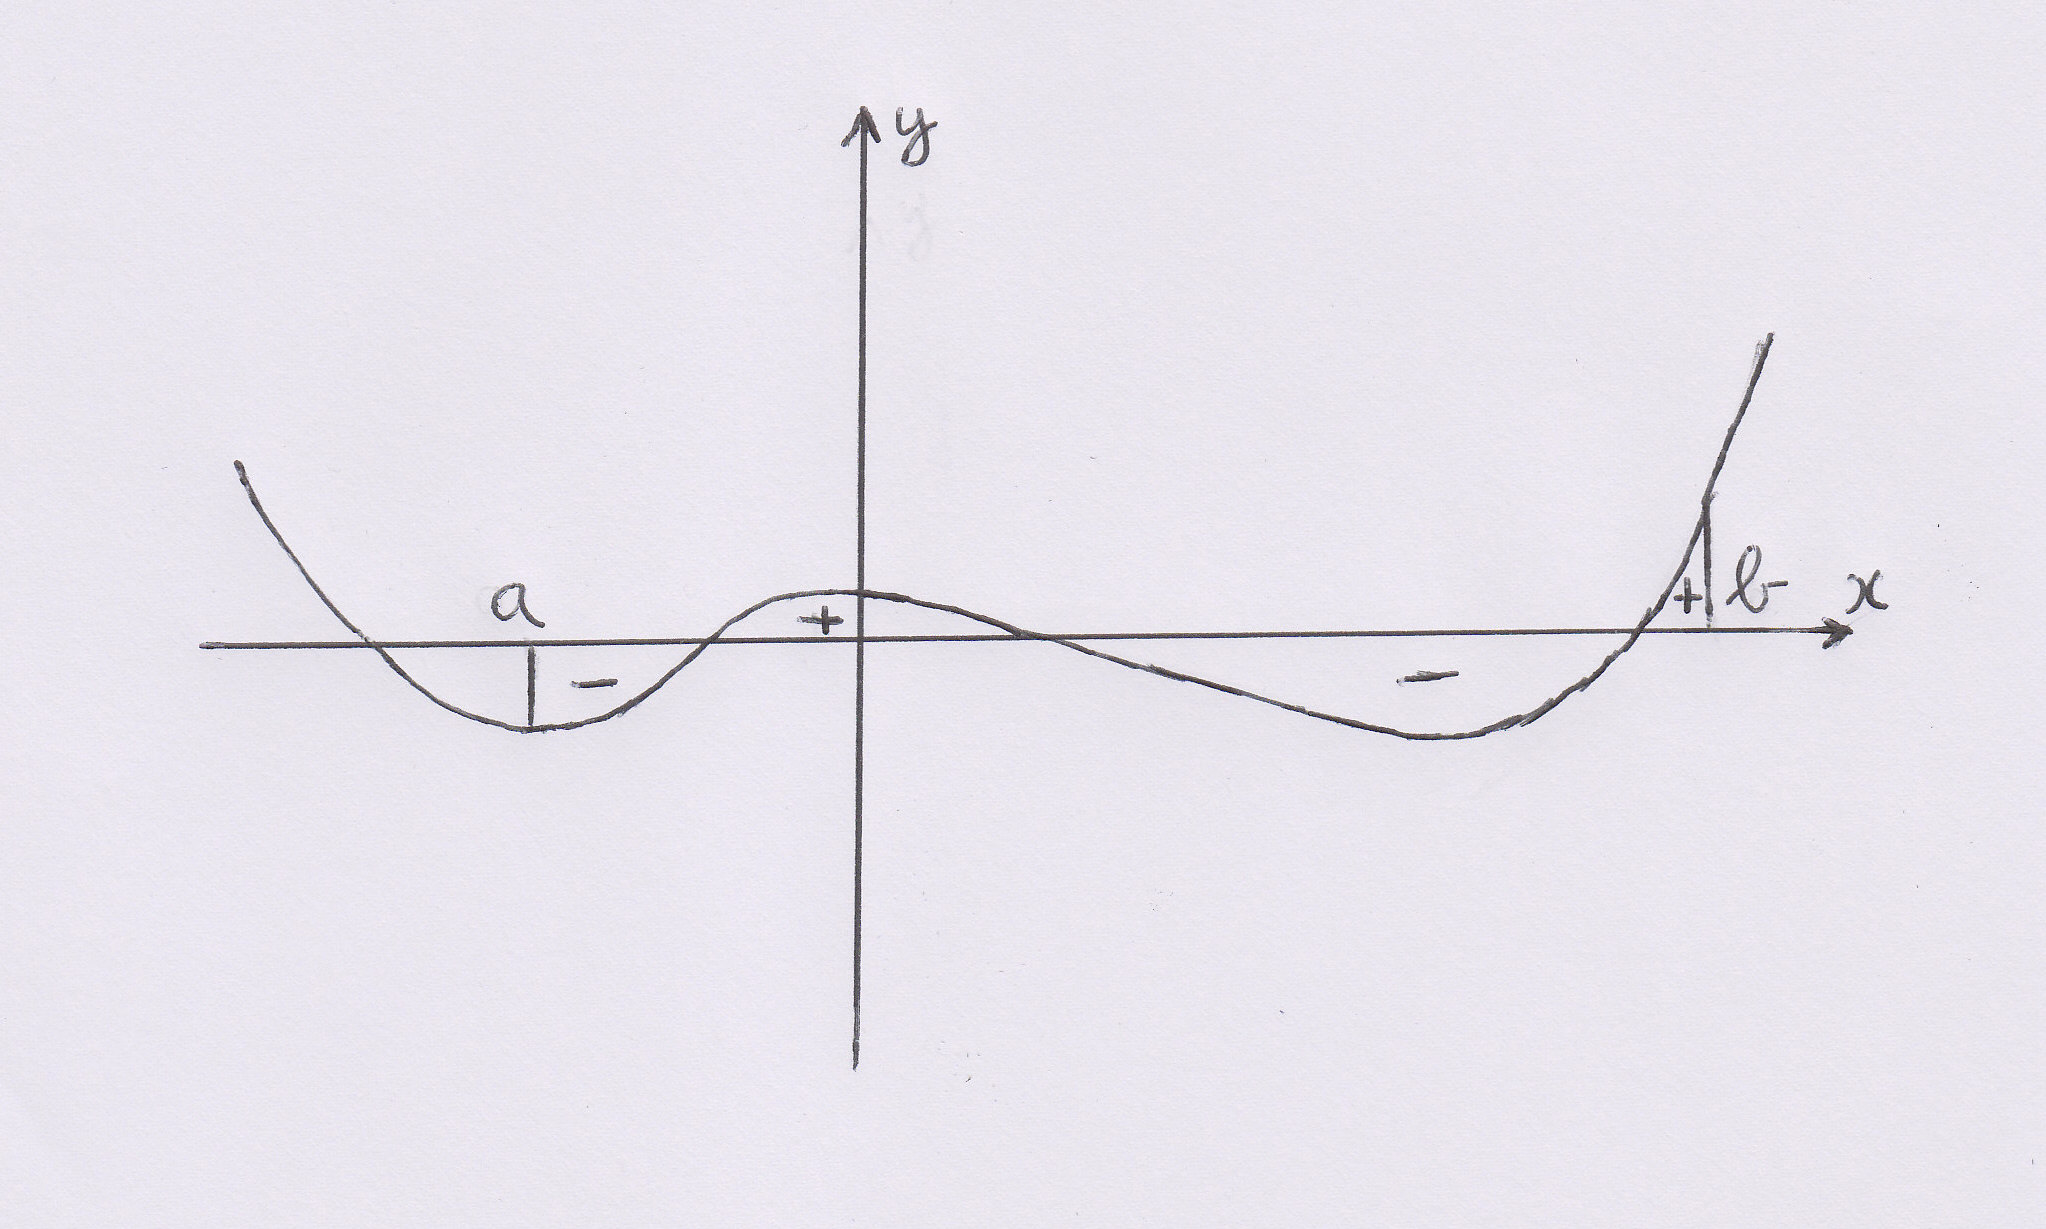 y
a
+
+
b
x
-
-